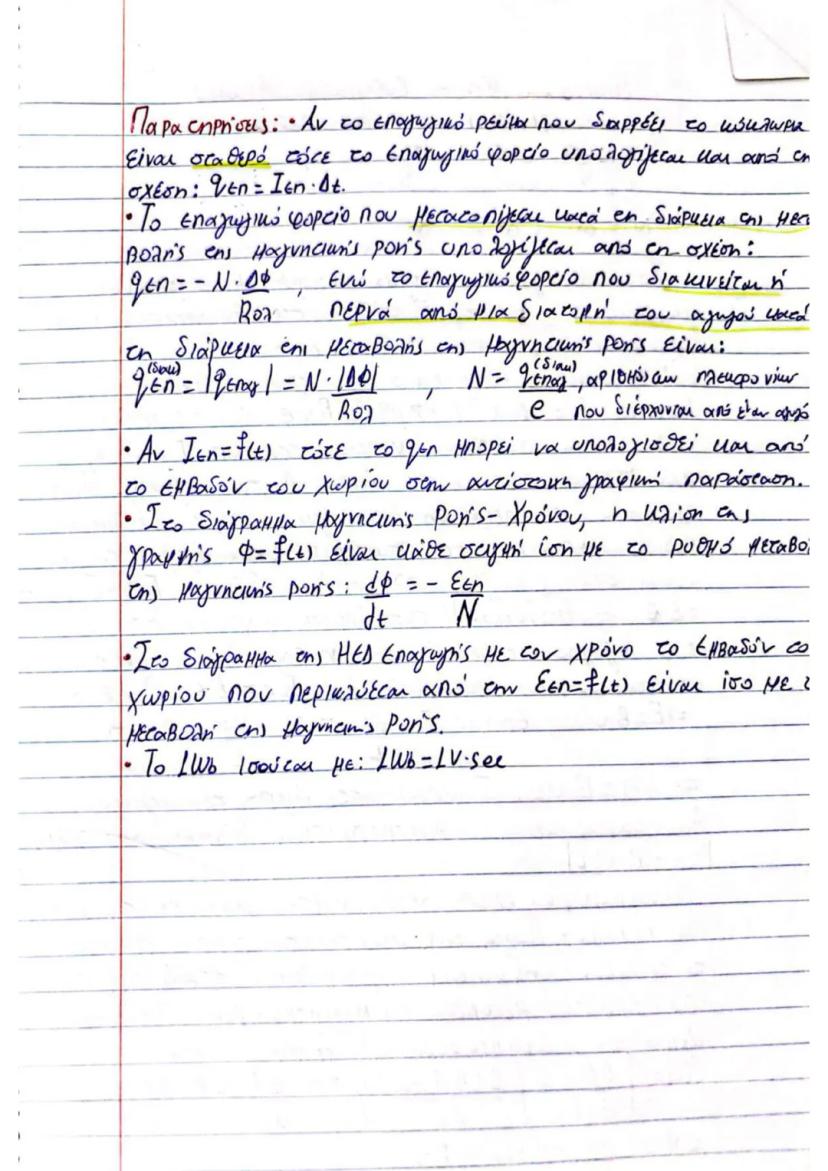 Παρατηρήσεις: • Αν το επαγωγικό ρεύμα που διαρρέει το κύκλωμα
είναι σταθερό τότε το επαγωγικό φορτίο υπολογίζεται και από τη
σχέση: qεπ = Iεπ · Δt.
• Το επαγωγικό φορτίο που μετατοπίζεται κατά τη διάρκεια της μετα
βολής της μαγνητικής ροής υπολογίζεται από τη σχέση:
qεπ = - N · ΔΦ/Rολ , ενώ το επαγωγικό φορτίο που διακινείται ή
περνά από μια διατομή του αγωγού κατά
τη διάρκεια της μεταβολής της μαγνητικής ροής είναι:
qεπ(διακ) = |qεπαγ| = N · |ΔΦ|/Rολ , N = qεπαγ(διακ)/e , αριθμός των ηλεκτρονίων
που διέρχονται από έναν αγωγό
• Αν Iεπ = f(t) τότε το qεπ μπορεί να υπολογισθεί και από
το εμβαδόν του χωρίου στην αντίστοιχη γραφική παράσταση.
• Στο διάγραμμα μαγνητικής ροής - χρόνου, η κλίση της
γραμμής Φ = f(t) είναι κάθε στιγμή ίση με το ρυθμό μεταβο
της μαγνητικής ροής: dΦ/dt = - Eεπ/N
• Στο διάγραμμα της ΗΕΔ επαγωγής με τον χρόνο το εμβαδόν το
χωρίου που περικλύεται από την Eεπ = f(t) είναι ίσο με τ
μεταβολή της μαγνητικής ροής.
• Το 1Wb ισούται με: 1Wb = 1V·sec